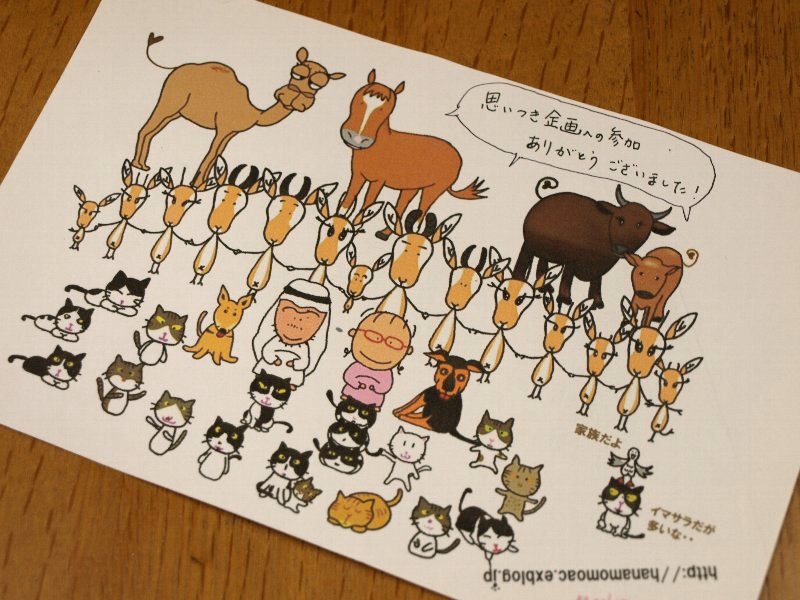 思いつき企画への参加
ありがとうございました!
家族だよ
イマサラだが
多いな・・
http://hanamomoac.exblog.jp